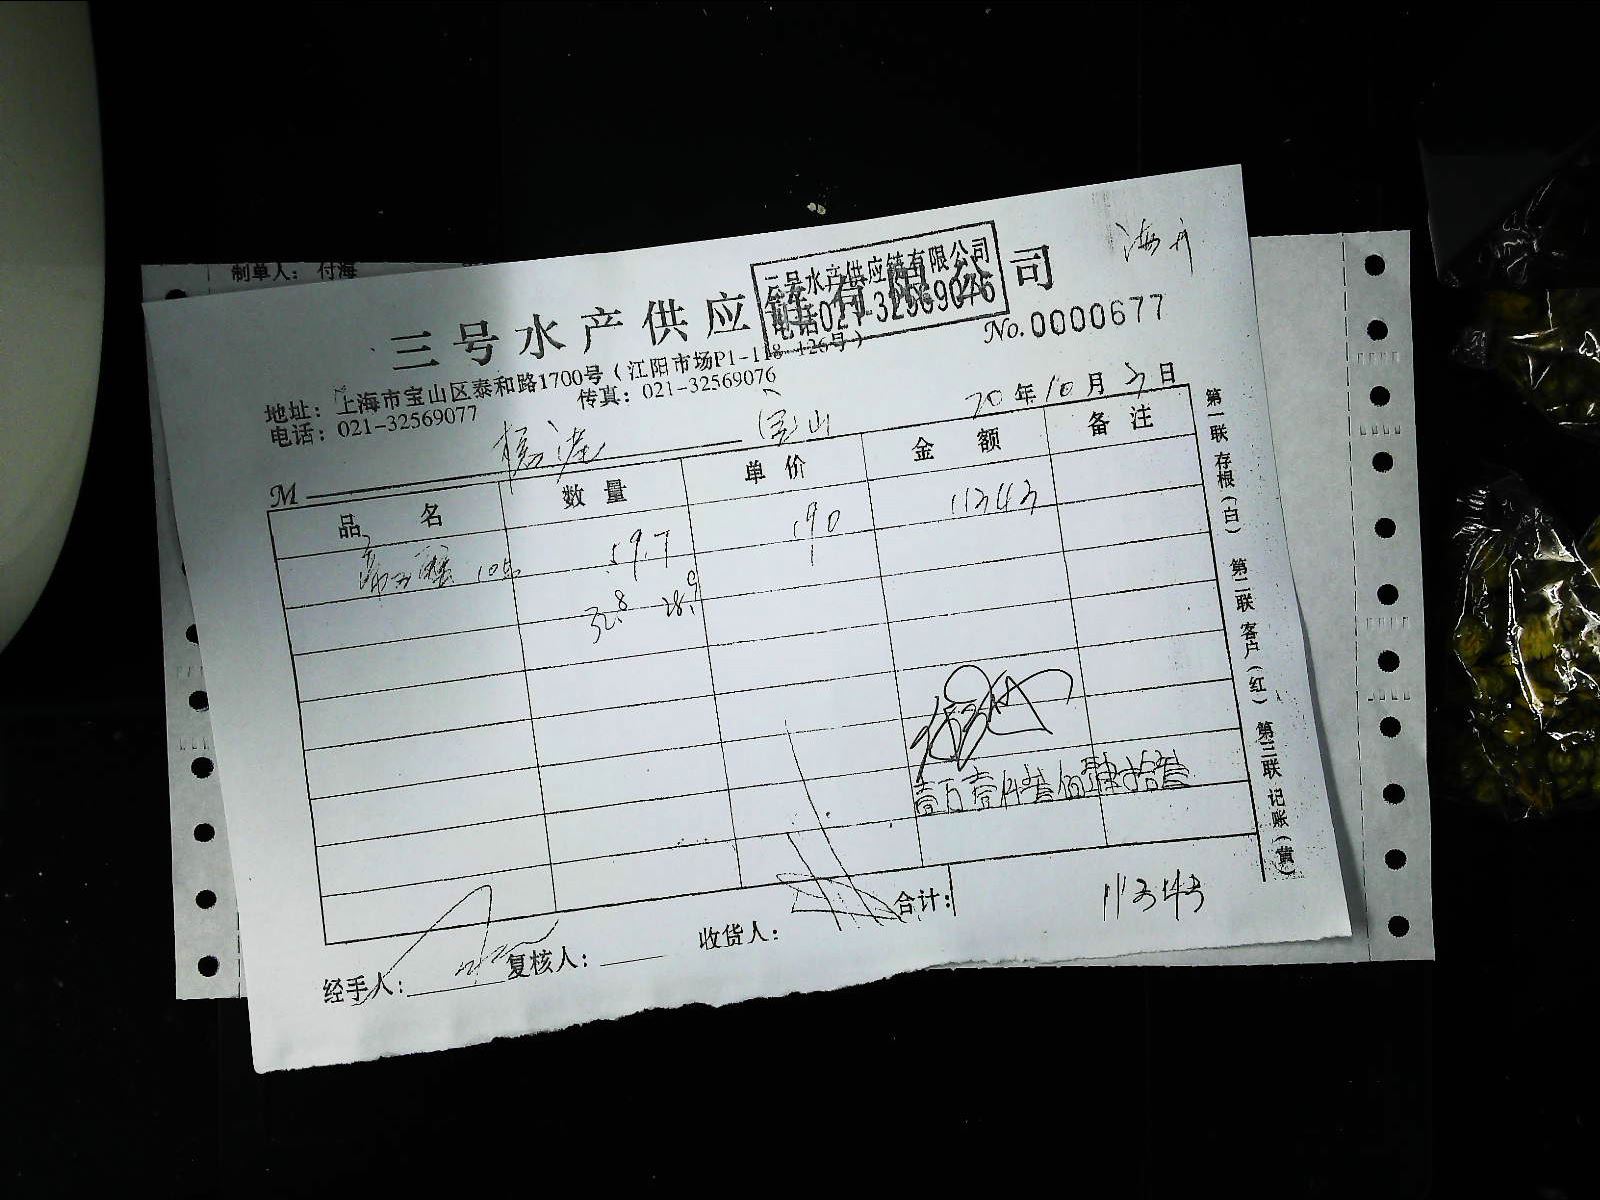 制单人： 付海
海丹
三号水产供应链有限公司
三号水产供应链有限公司
电话021-32569076
No.0000677
地址：上海市宝山区泰和路1700号（江阳市场P1-118-126号）
电话：021-32569077 传真：021-32569076
20年10月 日
M 宝山
品名 数量 单价 金额 备注
帝王蟹 59.7 190 11343
32.8 28.9
壹万壹仟叁佰肆拾叁
合计： 11343
经手人： 复核人： 收货人：
第一联 存根（白） 第二联 客户（红） 第三联 记账（黄）